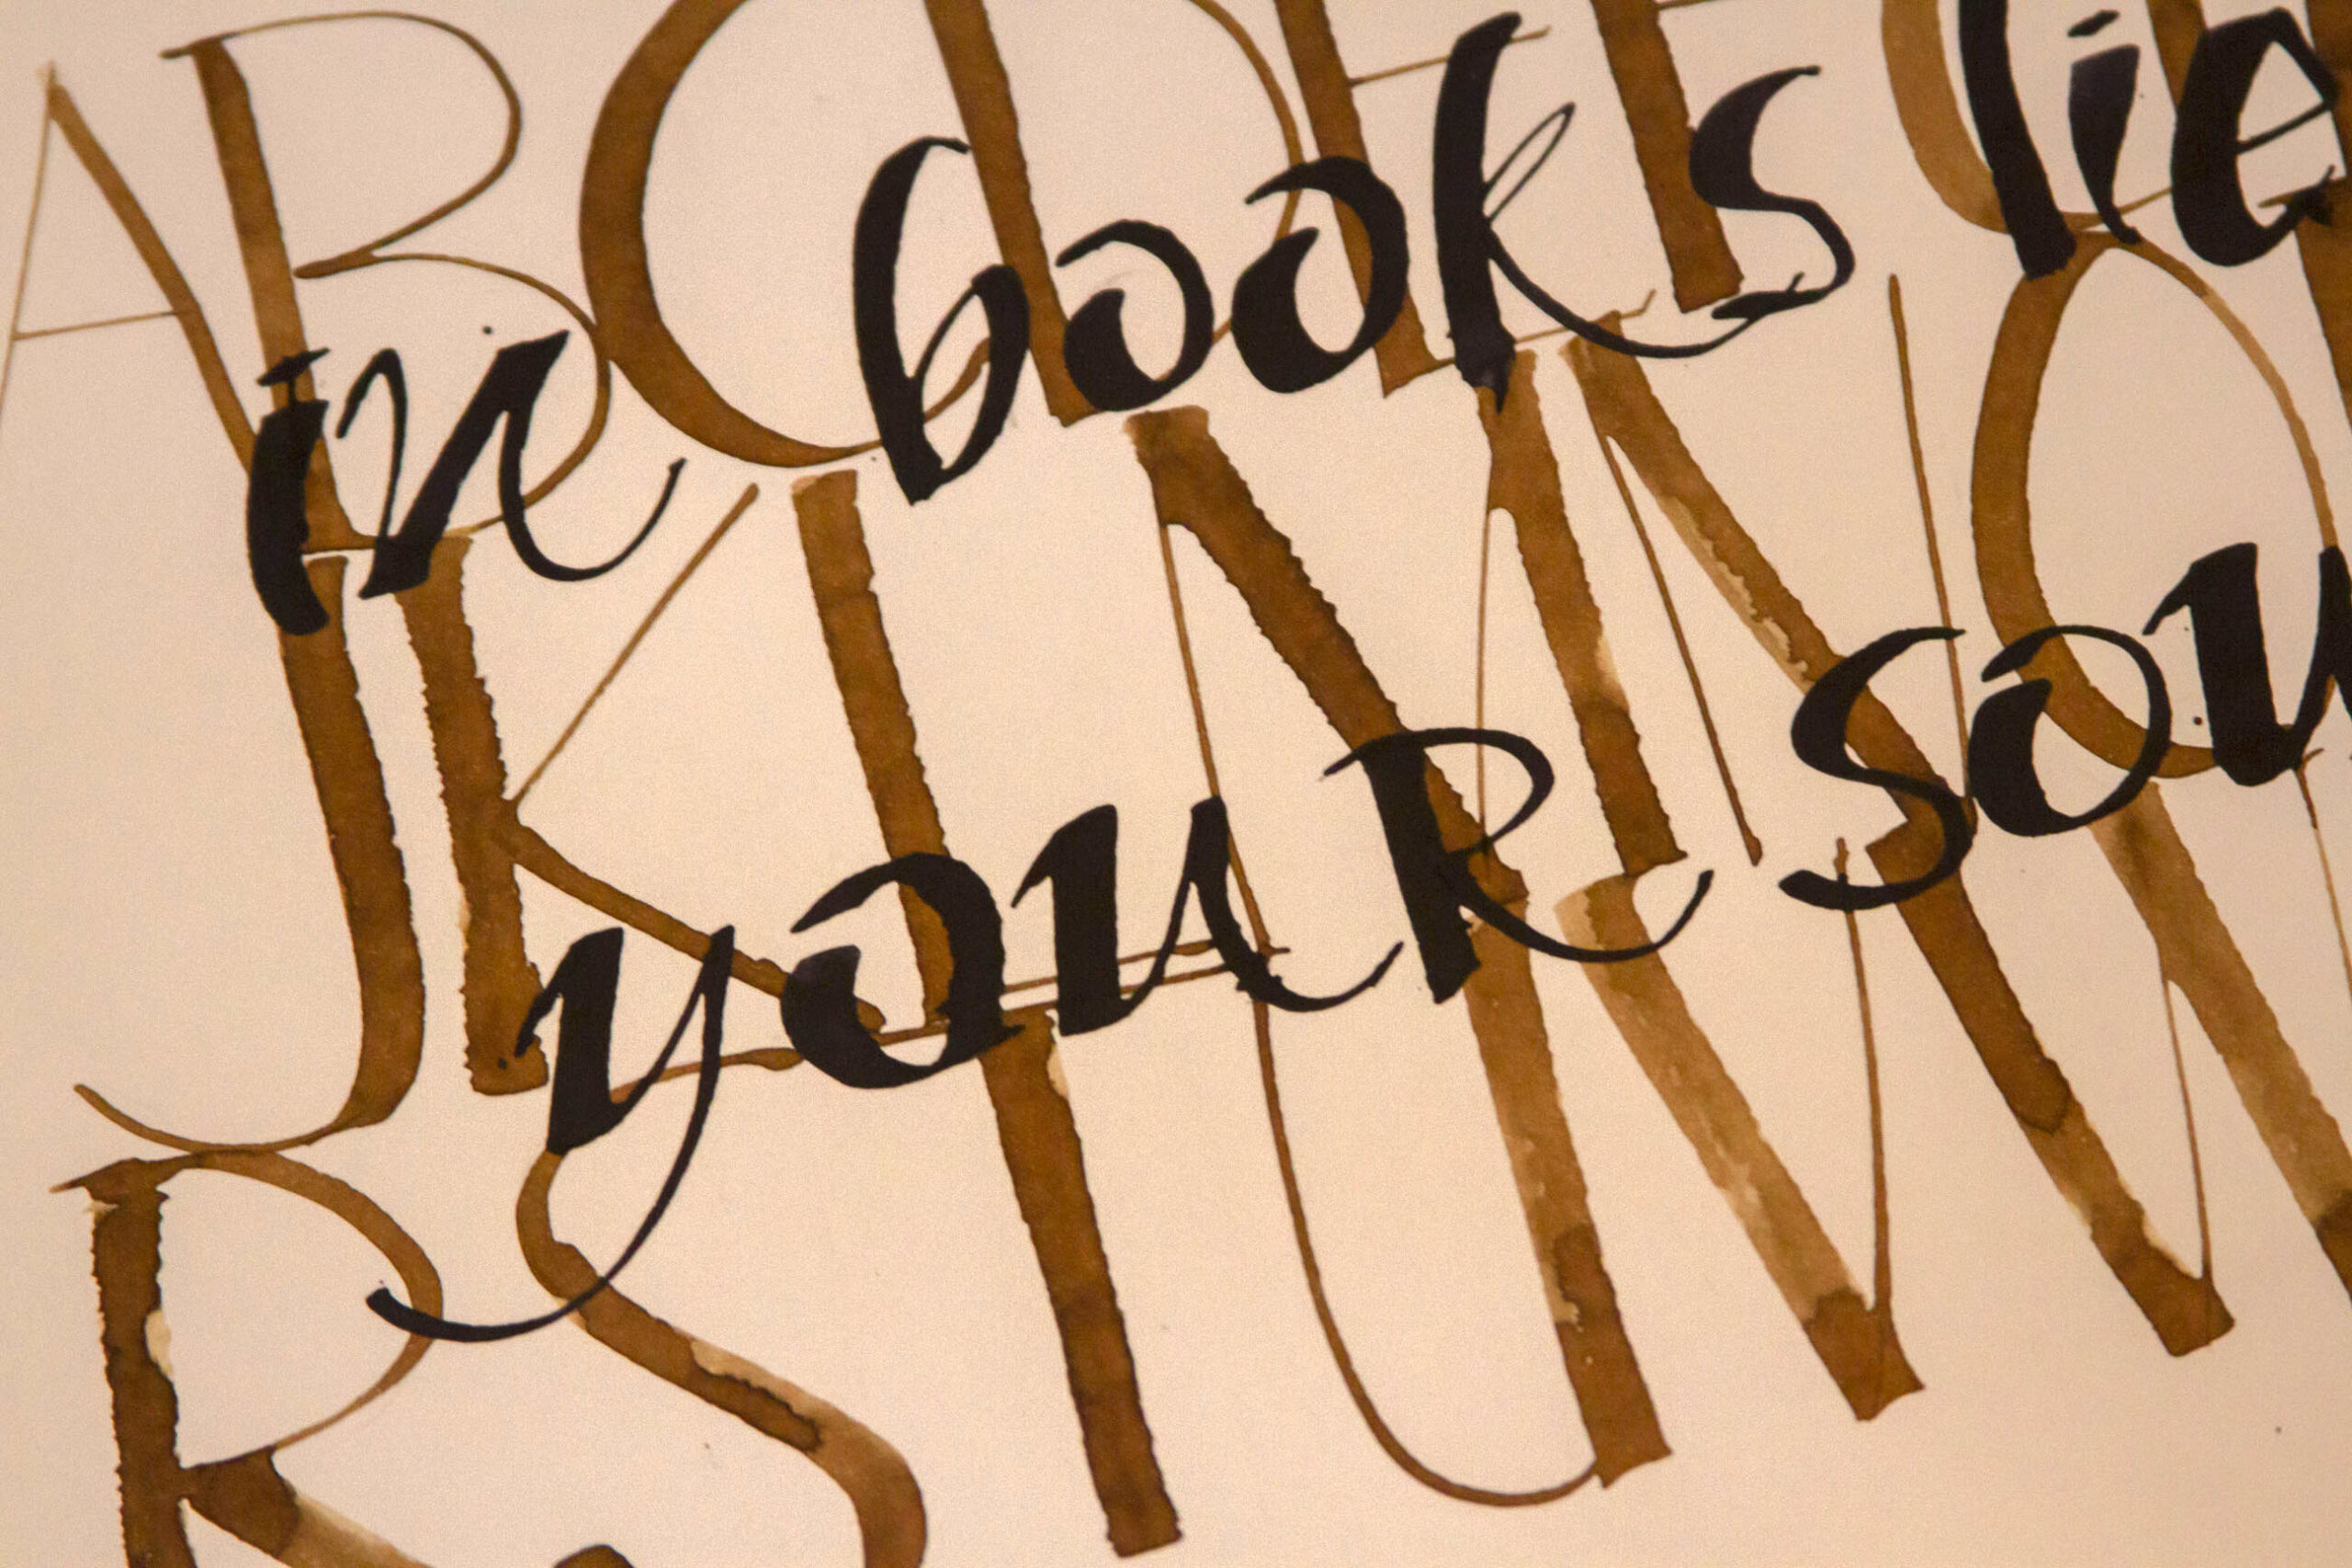 ABCDEFG
in books lie
JKLMNO
your sou
RSTUVW